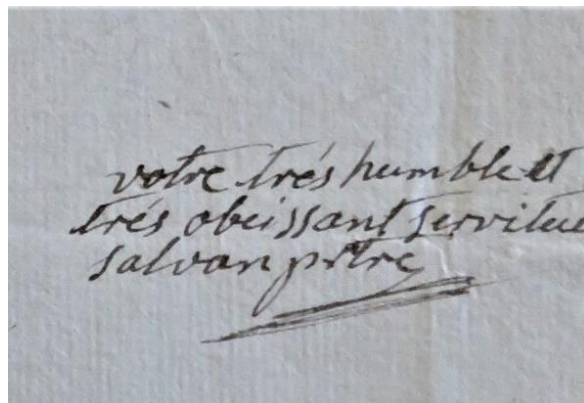 votre trés humble et
trés obeissant serviteu
salvan prtre